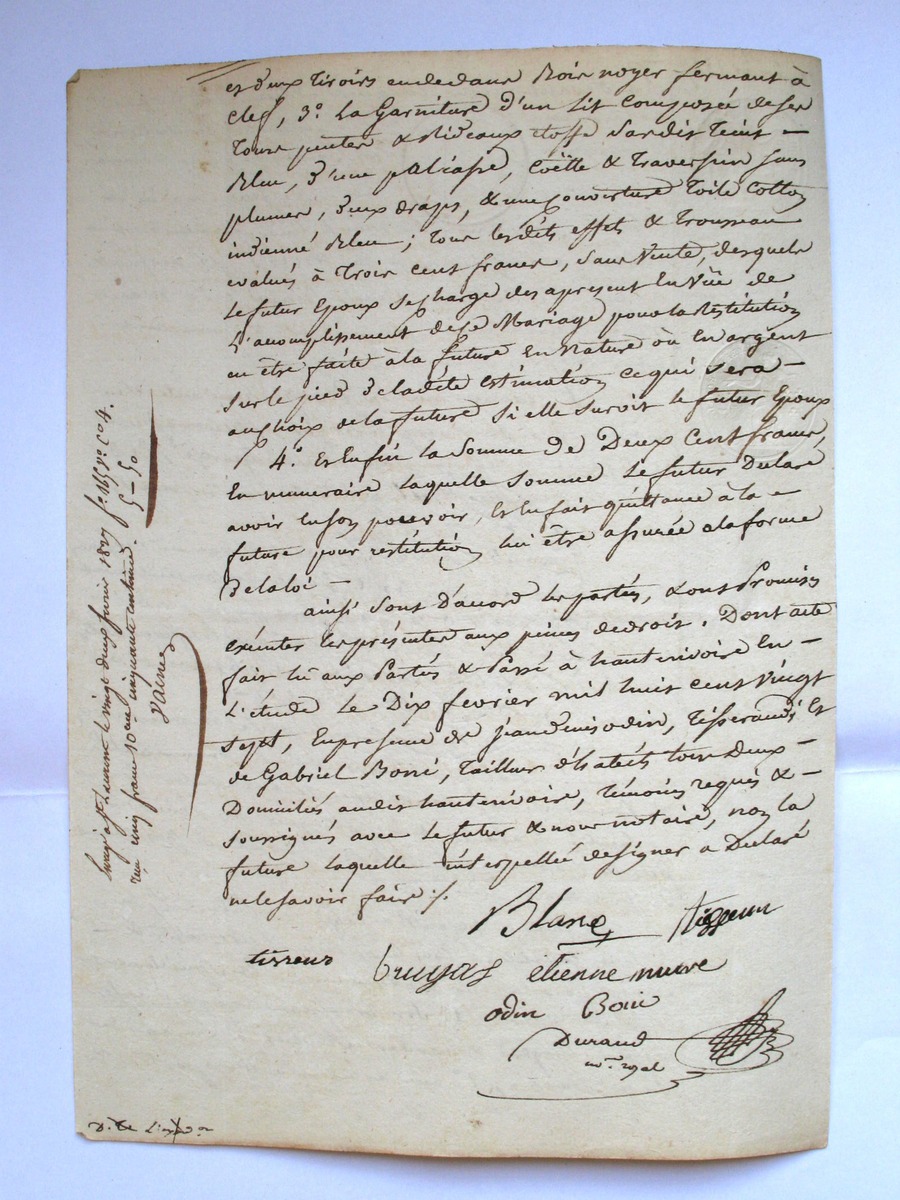 et deux tiroirs en dedans Bois noyer fermant à
clef, 3°. La Garniture d'un Lit Composée de ses
tours pentes & Rideaux etoffe sardit teint -
Bleu, d'une paliasse, Coëtte & traversin sans
plumes, deux draps, & une Couverture toile Cotton
indienné Bleu ; tous lesdits effets & trousseau
evalués à trois cent francs, sans Vente, desquels
Le futur Epoux se charge des apresent En Vüe de
L'acomplissement de ce Mariage pour la Restitution
en être faite à la future En Nature ou En argent
sur le pied de ladite estimation ce qui sera -
au choix de la future si elle survit le futur Epoux
4°. Et Enfin la Somme de Deux Cent francs,
En numeraire laquelle Somme Le futur Declare
avoir En son pouvoir, Et En fait quittance à la -
future pour restitution lui être assurée a la forme
De la loi -
ainsi sont d'accord les parties, & ont Promis
exécuter les présentes aux peines de droit. Dont acte
fait lu aux Parties & Passé à hauterivoire En -
L'étude Le Dix fevrier mil huit cent Vingt
sept, En presence de jean denis odin, tisserand, Et
de Gabriel Borri, tailleur d'habits tous Deux -
Domiciliés audit hauterivoire, témoins requis & -
soussignés avec Le futur & nous notaire, non la
future laquelle interpellée de signer a Declaré
ne le savoir faire ./.
Blanc tisseur
tisseur bruyas etienne
odin Borri
Durand
not. royal
Enregistré à St Laurent le vingt deux fevrier 1827 fo. 165 vo. Co 4.
reçu cinq francs 10eme cinquante centimes. 5-50